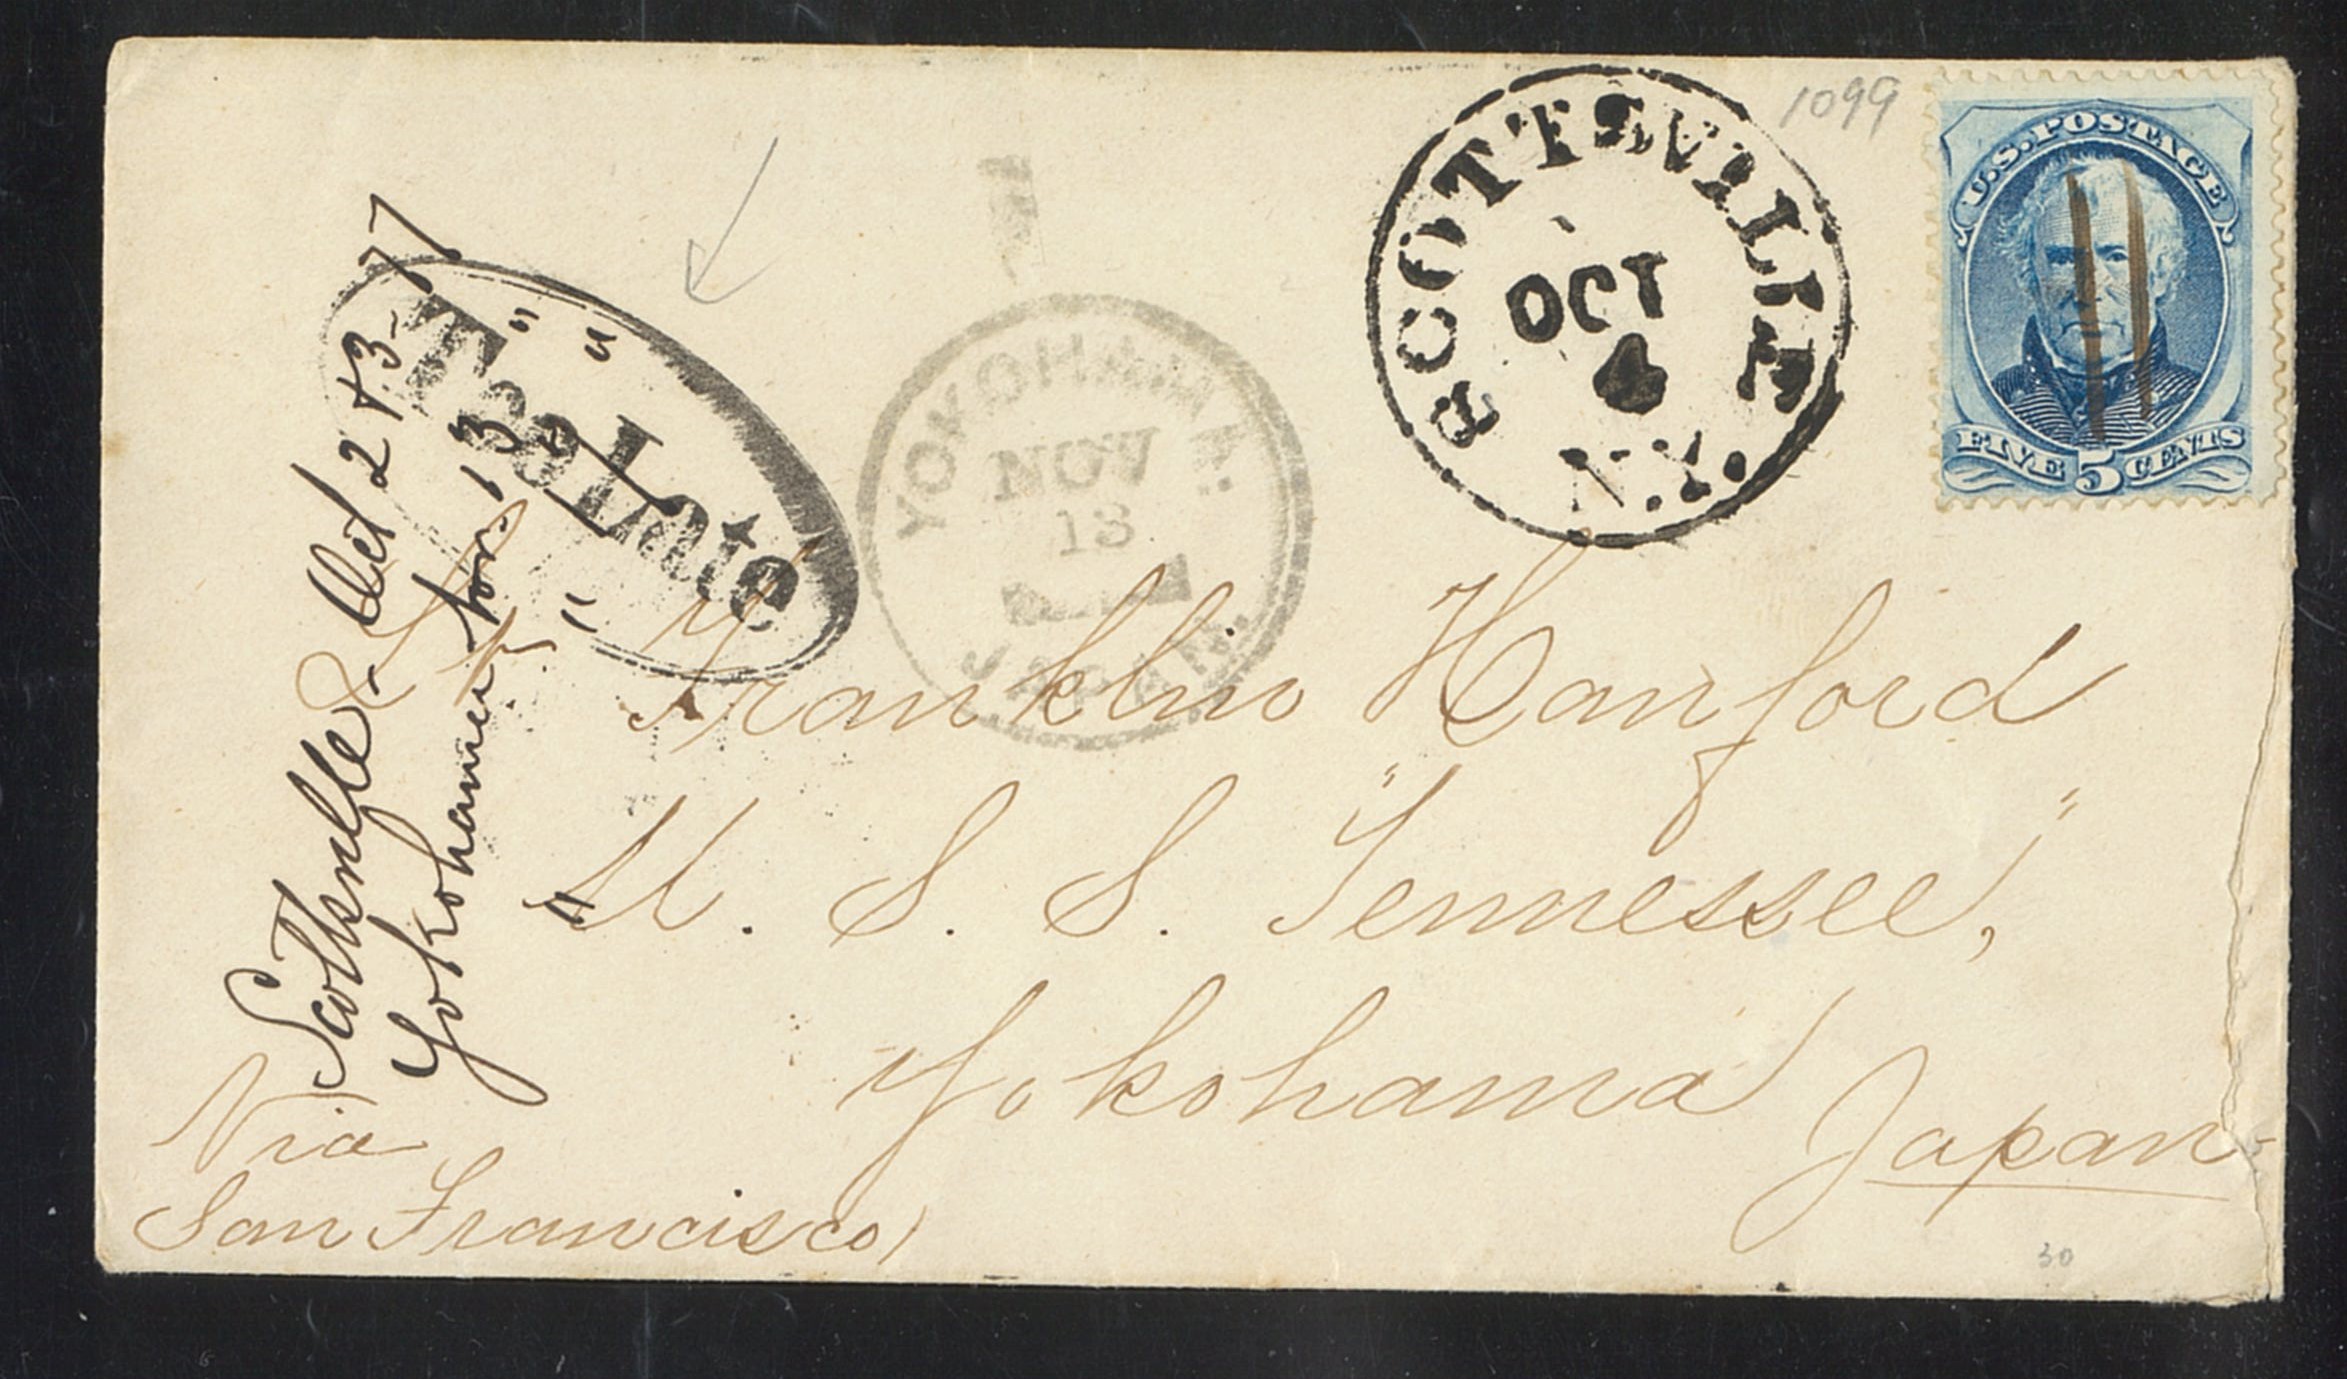 1099
U.S. POSTAGE
FIVE 5 CENTS
SCOTTSVILLE
OCT
4
N.Y.
Too Late
YOKOHAMA.
NOV
13
JAPAN.
Scottsville Oct 2 & 3-77
Yokohama Nov. 13 " "
Franklin Hanford
U. S. S. "Tennessee,"
Yokohama
Japan
Via
San Francisco
30